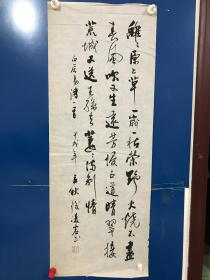 離離原上草一歲一枯榮野火燒不盡
春風吹又生遠芳侵古道晴翠接
荒城又送王孫去萋萋滿別情
白居易詩一首 戌年 秋 書